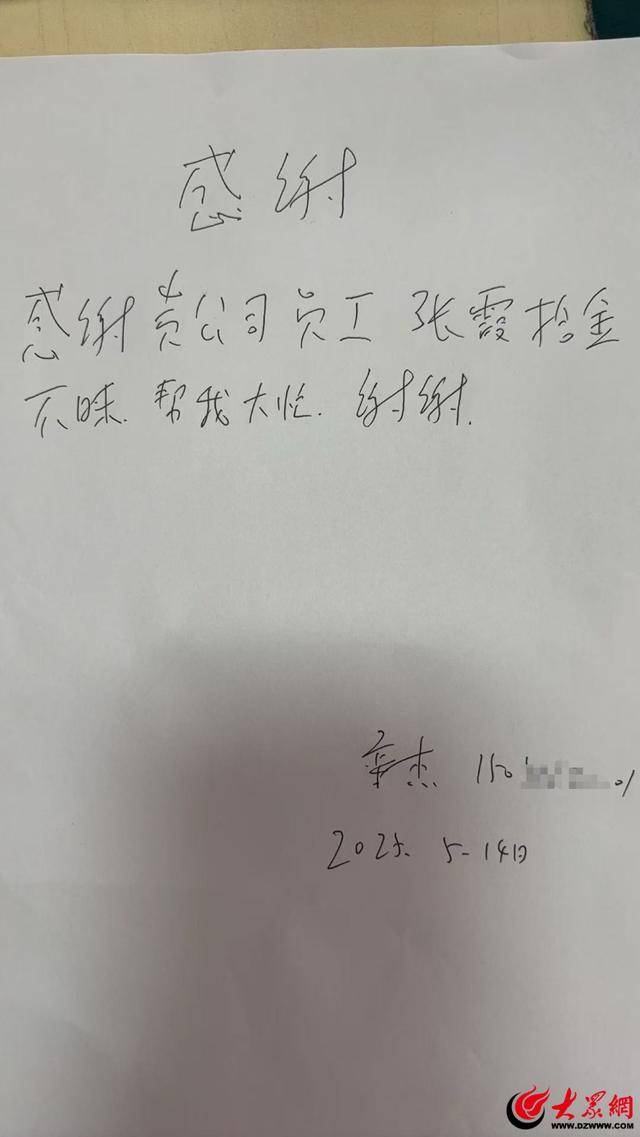 感谢
感谢贵公司员工张霞拾金
不昧.帮我大忙.谢谢.
杰 150
2025. 5-14日
大众網
WWW.DZWWW.COM